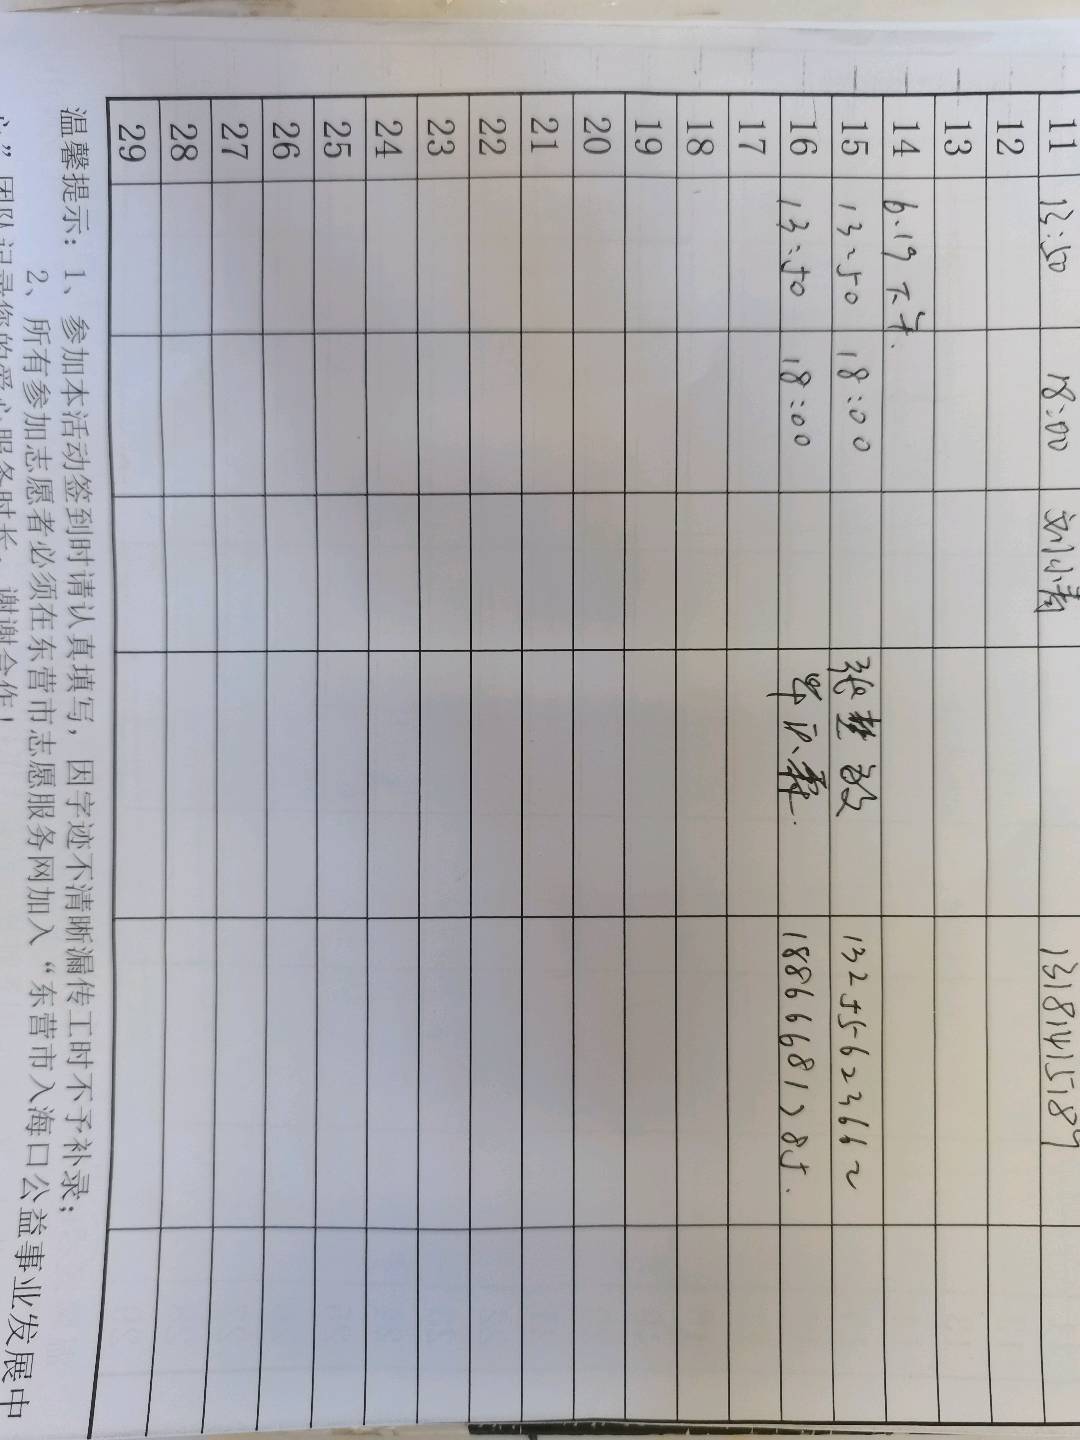 11 13:50 18:00 刘小青 13181415189
12
13
14 6.19 下午.
15 13:50 18:00 张楚 13255623662
16 13:50 18:00 18866681785.
17
18
19
20
21
22
23
24
25
26
27
28
29
温馨提示：1、参加本活动签到时请认真填写，因字迹不清晰漏传工时不予补录；
2、所有参加志愿者必须在东营市志愿服务网加入“东营市入海口公益事业发展中
心”团队记录您的爱心服务时长，谢谢合作！